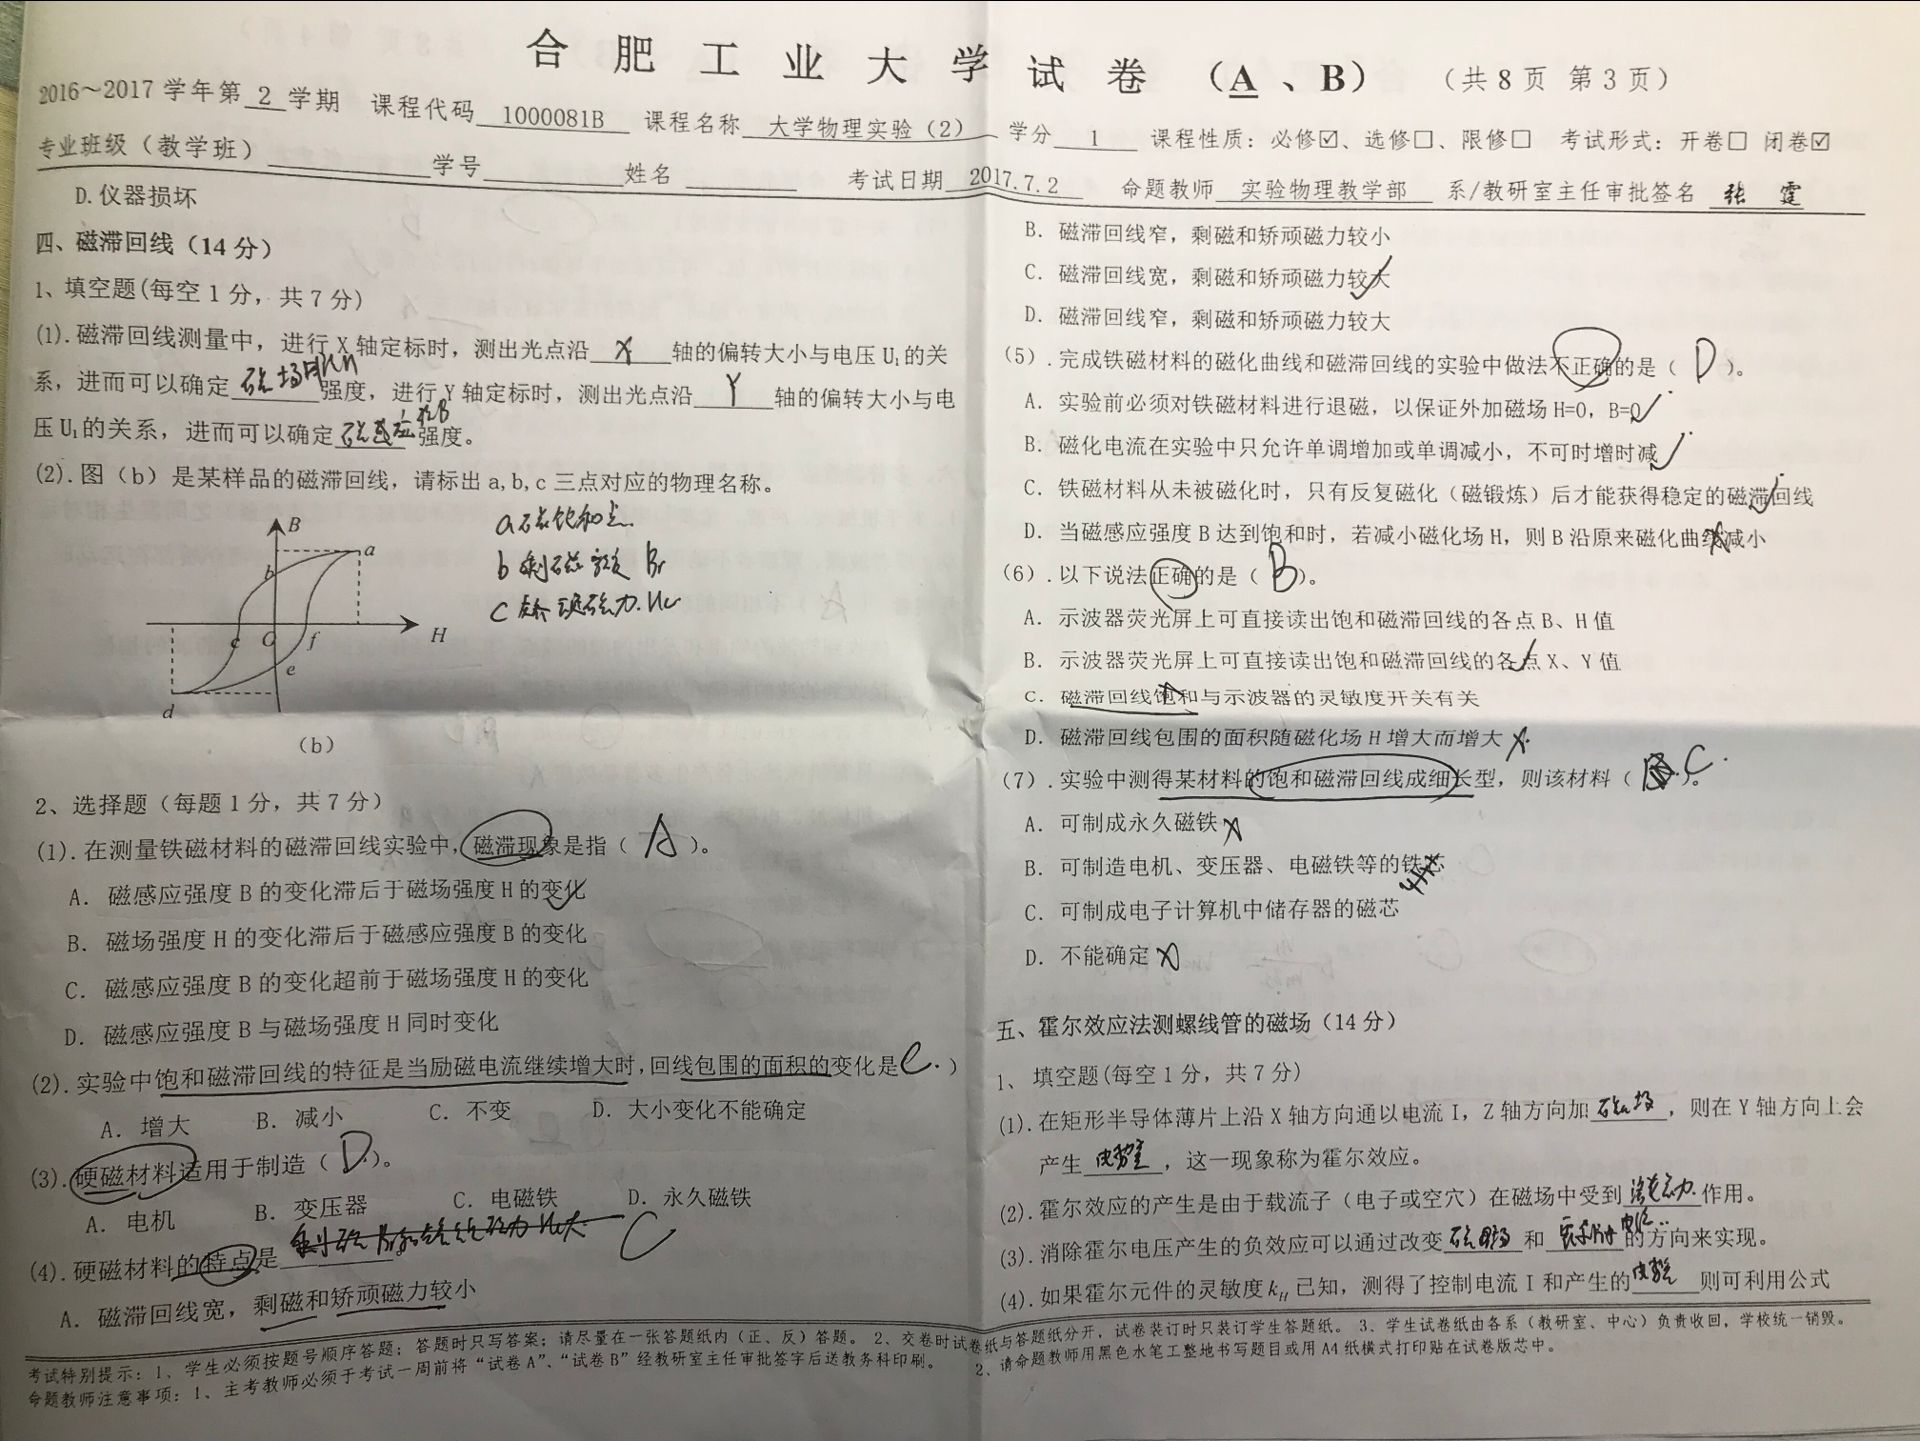 合肥工业大学试卷（A、B） （共 8 页 第 3 页）
2016～2017 学年第 2 学期 课程代码 1000081B 课程名称 大学物理实验（2） 学分 1 课程性质：必修☑、选修□、限修□ 考试形式：开卷□ 闭卷☑
专业班级（教学班） 学号 姓名 考试日期 2017.7.2 命题教师 实验物理教学部 系/教研室主任审批签名 张 霆
D.仪器损坏
四、磁滞回线（14 分）
1、填空题(每空 1 分，共 7 分)
(1).磁滞回线测量中，进行 X 轴定标时，测出光点沿 X 轴的偏转大小与电压 U₁的关
系，进而可以确定 磁场 强度，进行 Y 轴定标时，测出光点沿 Y 轴的偏转大小与电
压 U₁的关系，进而可以确定 磁感应 强度。
(2).图（b）是某样品的磁滞回线，请标出 a,b,c 三点对应的物理名称。
B
a
b
H
c
O
f
e
d
a 磁饱和点.
b 剩磁 Br
c 矫顽磁力.Hc
（b）
2、选择题（每题 1 分，共 7 分）
(1).在测量铁磁材料的磁滞回线实验中，磁滞现象是指（ A ）。
A. 磁感应强度 B 的变化滞后于磁场强度 H 的变化
B. 磁场强度 H 的变化滞后于磁感应强度 B 的变化
C. 磁感应强度 B 的变化超前于磁场强度 H 的变化
D. 磁感应强度 B 与磁场强度 H 同时变化
(2).实验中饱和磁滞回线的特征是当励磁电流继续增大时，回线包围的面积的变化是 C. ）
A. 增大 B. 减小 C. 不变 D. 大小变化不能确定
(3).硬磁材料适用于制造（ D ）。
A. 电机 B. 变压器 C. 电磁铁 D. 永久磁铁
(4).硬磁材料的特点是 C
A. 磁滞回线宽，剩磁和矫顽磁力较小
B. 磁滞回线窄，剩磁和矫顽磁力较小
C. 磁滞回线宽，剩磁和矫顽磁力较大
D. 磁滞回线窄，剩磁和矫顽磁力较大
（5）.完成铁磁材料的磁化曲线和磁滞回线的实验中做法不正确的是（ D ）。
A. 实验前必须对铁磁材料进行退磁，以保证外加磁场 H=0，B=0
B. 磁化电流在实验中只允许单调增加或单调减小，不可时增时减
C. 铁磁材料从未被磁化时，只有反复磁化（磁锻炼）后才能获得稳定的磁滞回线
D. 当磁感应强度 B 达到饱和时，若减小磁化场 H，则 B 沿原来磁化曲线减小
（6）.以下说法正确的是（ B ）。
A. 示波器荧光屏上可直接读出饱和磁滞回线的各点 B、H 值
B. 示波器荧光屏上可直接读出饱和磁滞回线的各点 X、Y 值
C. 磁滞回线饱和与示波器的灵敏度开关有关
D. 磁滞回线包围的面积随磁化场 H 增大而增大
（7）.实验中测得某材料的饱和磁滞回线成细长型，则该材料（ C ）。
A. 可制成永久磁铁
B. 可制造电机、变压器、电磁铁等的铁芯
C. 可制成电子计算机中储存器的磁芯
D. 不能确定
五、霍尔效应法测螺线管的磁场（14 分）
1、 填空题(每空 1 分，共 7 分)
(1).在矩形半导体薄片上沿 X 轴方向通以电流 I，Z 轴方向加 磁场 ，则在 Y 轴方向上会
产生 电势差 ，这一现象称为霍尔效应。
(2).霍尔效应的产生是由于载流子（电子或空穴）在磁场中受到 洛仑兹力 作用。
(3).消除霍尔电压产生的负效应可以通过改变 磁场 和 的方向来实现。
(4).如果霍尔元件的灵敏度 kH 已知，测得了控制电流 I 和产生的 电势差 则可利用公式
考试特别提示：1、学生必须按题号顺序答题；答题时只写答案；请尽量在一张答题纸内（正、反）答题。 2、交卷时试卷纸与答题纸分开，试卷装订时只装订学生答题纸。 3、学生试卷纸由各系（教研室、中心）负责收回，学校统一销毁。
命题教师注意事项：1、主考教师必须于考试一周前将“试卷 A”、“试卷 B”经教研室主任审批签字后送教务科印刷。 2、请命题教师用黑色水笔工整地书写题目或用 A4 纸横式打印贴在试卷版芯中。